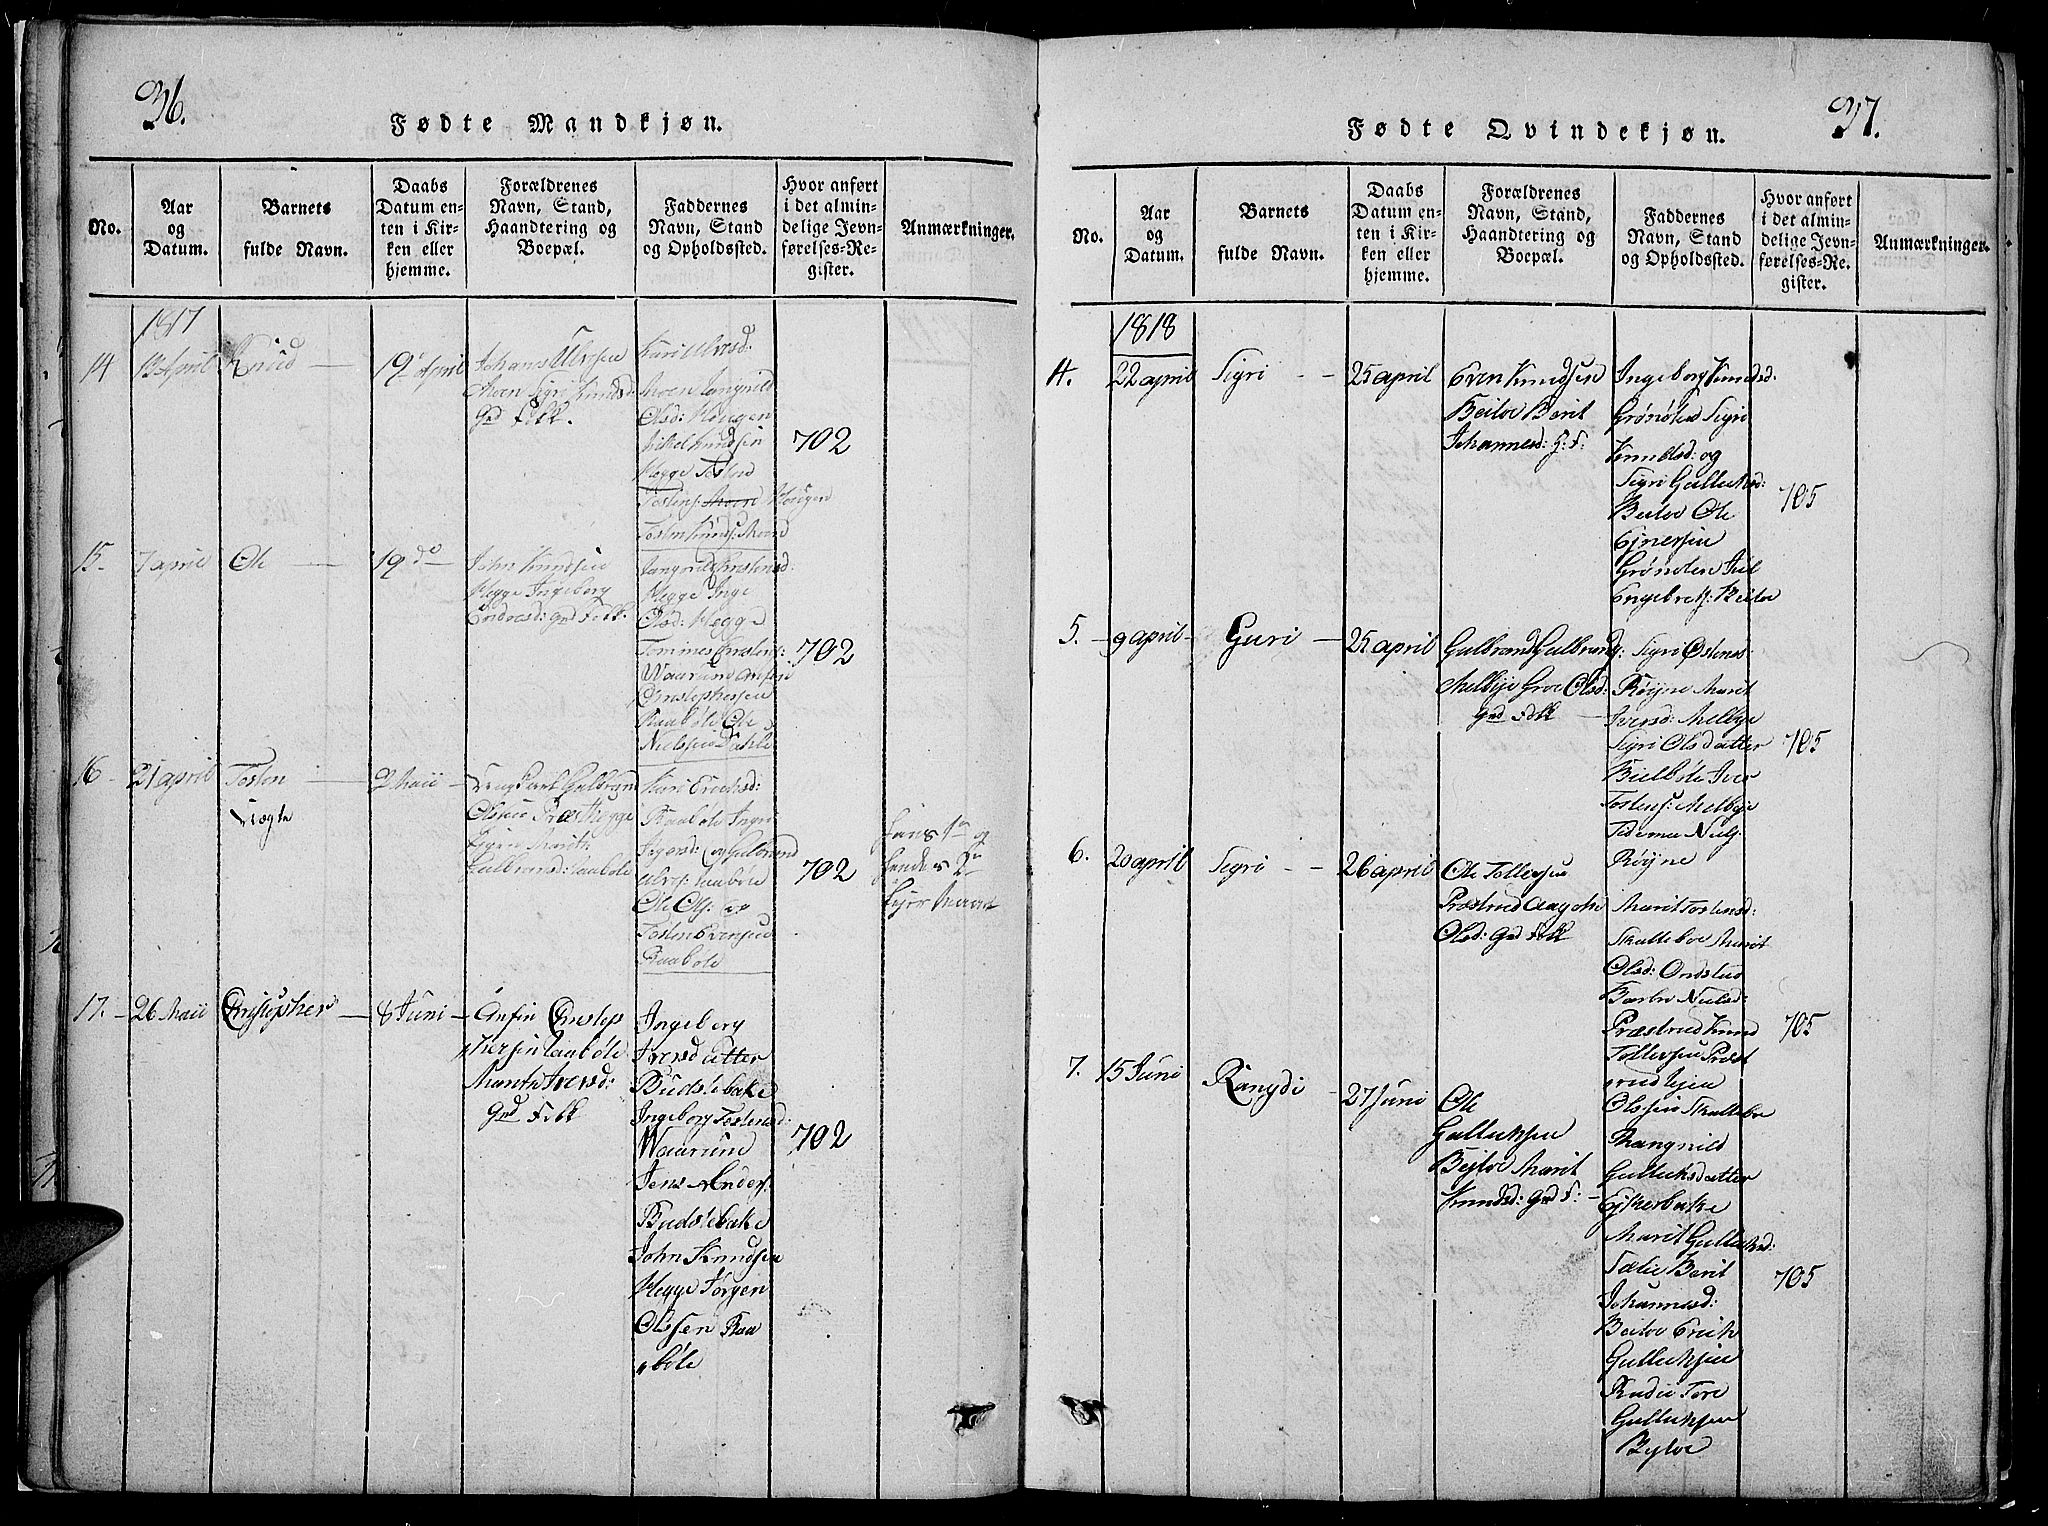 36.
Fødte Mandkjøn.
No.
Aar
og
Datum.
Barnets
fulde Navn.
Daabs
Datum en-
ten i Kir-
ken eller
hjemme.
Forældrenes
Navn, Stand,
Haandtering og
Boepæl.
Faddernes
Navn, Stand
og Opholdssted.
Hvor anført
i det almin-
delige Jevn-
førelses-Re-
gister.
Anmærkninger.
1817
14
13 April
Knud
19de April
Johans Ulvsen
Moen Sigri Knudsd:
Gmd Folk.
Kari Ulvesd.
Moen Rangnild
Olsd: Hougen
Mikel Knudsen
Hegge Tosten
Tostens: Moen Hougen
Tosten Knuds: Moen
702
15.
7 april
Ole
19 do
John Knudsen
Hegge Ingeborg
Endresd: Gmd Folk.
Rangnild Christensd:
Hegge Inge
Olsd: Hegge
Tommes Christens:
Waarum Anfin
Christophersen
Raabøle Ole
Nielssen Dahle
702
16
21 april
Tosten
2 Maii
Gulbran
Olssen Præsthegge
Pigen Marith
Gulbransd: Raabøle
Kari Erichsd:
Raabøle Ingri
Iversd: og Gulbrand
Ulvs: Raabøle
Ole Ols: og
Tosten Evensen
Raabøle
702
hans 1te og
hendes 2n
Lejermaal
17.
26 Maii
Christopher
8 Juni
Anfin Christop
hersen Raabøle
Marith Iversd:
Gmd Folk
Ingeborg
Iversdatter
Budslebake
Ingeborg Tostensd:
Waarum
Jens Anders:
Budslebake
John Knudsen
Hegge Jørgen
Olssen Raa
bøle
702
37.
Fødte Qvindekjøn.
No.
Aar
og
Datum.
Barnets
fulde Navn.
Daabs
Datum en-
ten i Kir-
ken eller
hjemme.
Forældrenes
Navn, Stand,
Haandtering og
Boepæl.
Faddernes
Navn, Stand
og Opholdssted.
Hvor anført
i det almin-
delige Jevn-
førelses-Re-
gister.
Anmærkninger.
1818
4.
22 april
Sigri
25 april
Even Knudsen
Beitoe Berit
Johannesd: G: F:
Ingeborg Knudsd:
Grønolen Sigri
Knudsd: og
Sigri Gulliksd:
Beitoe Ole
Ejnersen
Grønolen Juel
Engebrets: Beitoe
705
5.
9 april
Guri
25 april
Gulbrand Gulbrands:
Melbye Groe Olsd:
Gmd Folk
Sigri Østensd:
Røyne Marit
Iversd: Melbye
Sigri Olsdatter
Bielbøle Iver
Tostens: Melbye
Tideman Niels:
Røyne
705
6.
20 april
Sigri
26 april
Ole Tollefsen
Præstrud Aagothe
Olsd: Gmd Folk
Marit Tostensd:
Skatteboe Marit
Olsd: Onstad
Barbro Nielsd:
Præstrud Knud
Tollefsen Præst
rud
Olssen Skatteboe
705
7.
15 Juni
Rangdi
27 Juni
Ole
Gulliksen
Beitoe Marit
Knudsd: Gmd F:
Rangnild
Gulliksdatter
Eykerbake
Marit Gulliksd:
Sælie Berit
Johannesd:
Beitoe Erich
Gulliksen
Rudie Tore
Gulliksen
Bejtoe
705